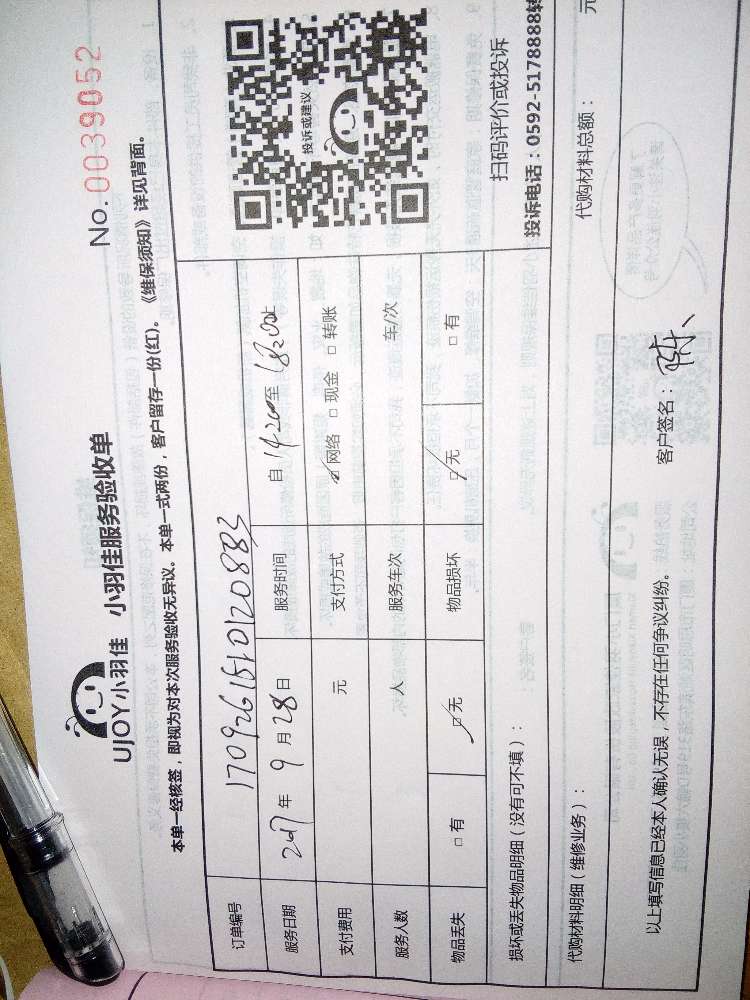 UJOY小羽佳 小羽佳服务验收单
No. 0039052
本单一经核签，即视为对本次服务验收无异议。本单一式两份，客户留存一份(红)。《维保须知》详见背面。
订单编号 1709261510120883
服务日期 2017年 9月28日 服务时间 自 14:20至 18:20止
支付费用 元 支付方式 ☑网络 □现金 □转账
服务人数 人 服务车次 车/次
物品丢失 □有 ☑无 物品损坏 ☑无 □有
投诉或建议
扫码评价或投诉
投诉电话：0592-5178888转
损坏或丢失物品明细（没有可不填）：
代购材料明细（维修业务）： 代购材料总额： 元
以上填写信息已经本人确认无误，不存在任何争议纠纷。 客户签名：陈